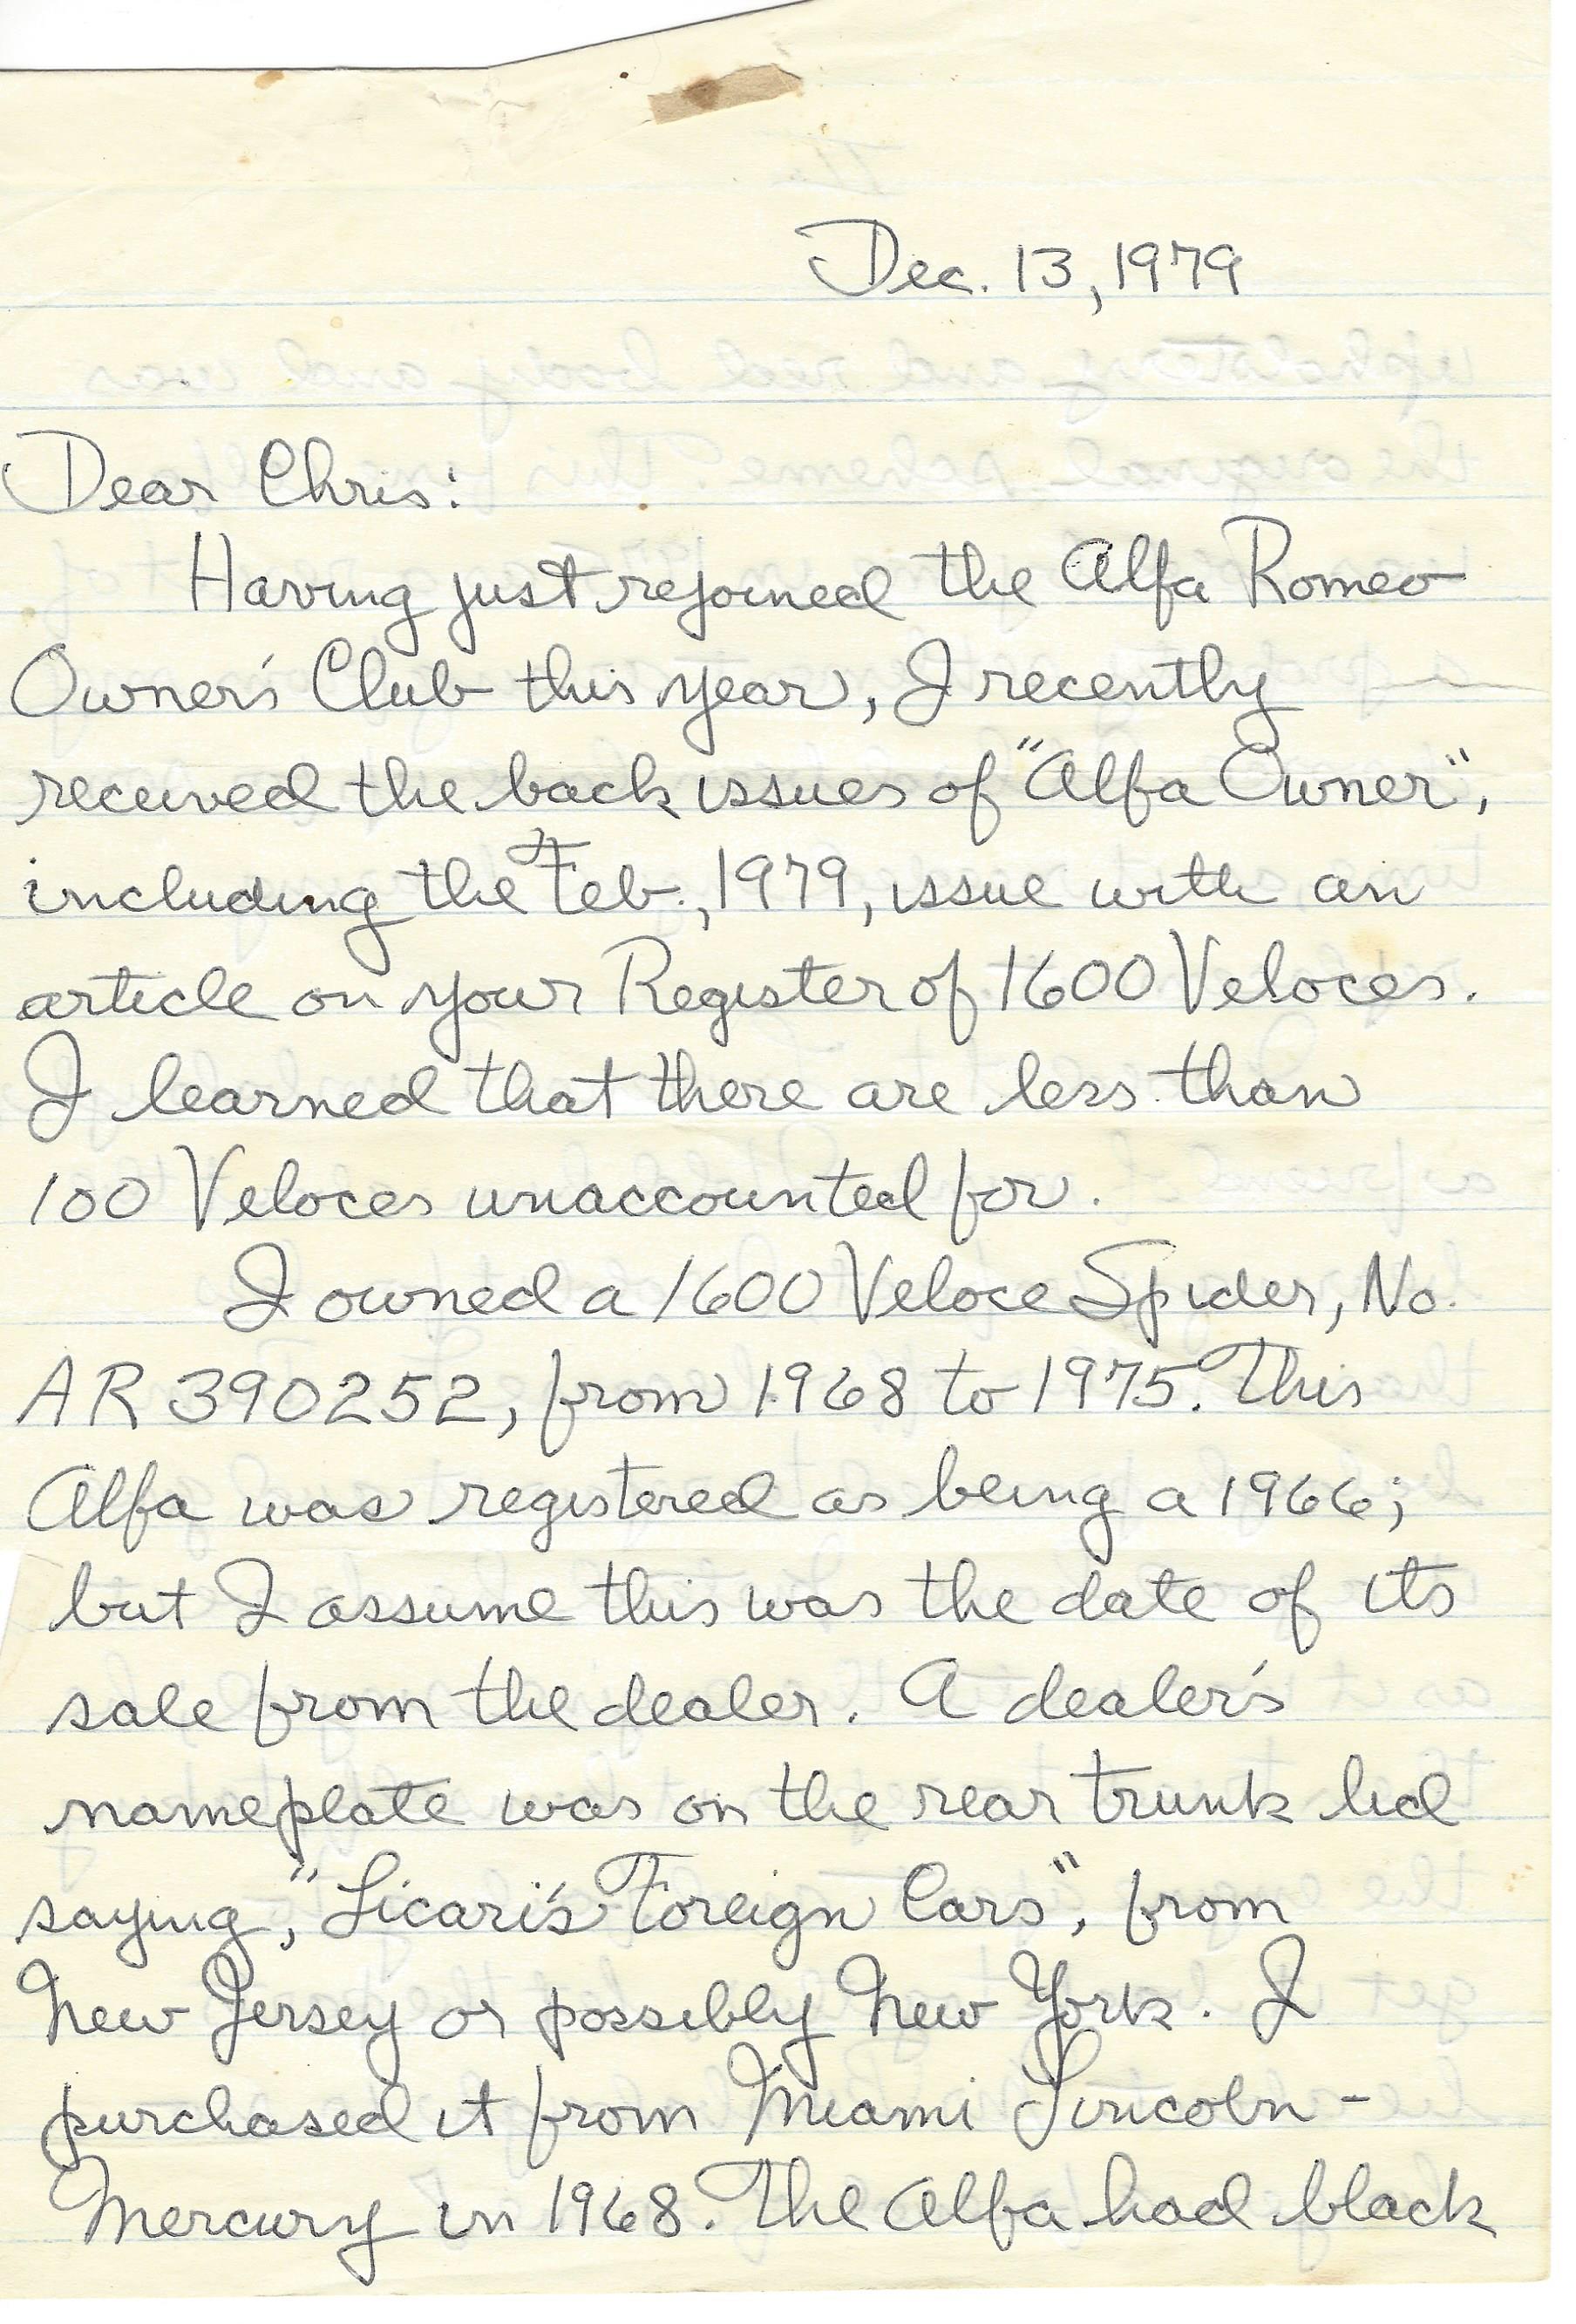 Dec. 13, 1979
Dear Chris:
Having just rejoined the Alfa Romeo
Owner's Club this year, I recently
received the back issues of "Alfa Owner",
including the Feb., 1979, issue with an
article on your Register of 1600 Veloces.
I learned that there are less than
100 Veloces unaccounted for.
I owned a 1600 Veloce Spider, No.
AR 390252, from 1968 to 1975. This
Alfa was registered as being a 1966;
but I assume this was the date of its
sale from the dealer. A dealer's
nameplate was on the rear trunk lid
saying, "Licari's Foreign Cars", from
New Jersey or possibly New York. I
purchased it from Miami Lincoln-
Mercury in 1968. The Alfa had black